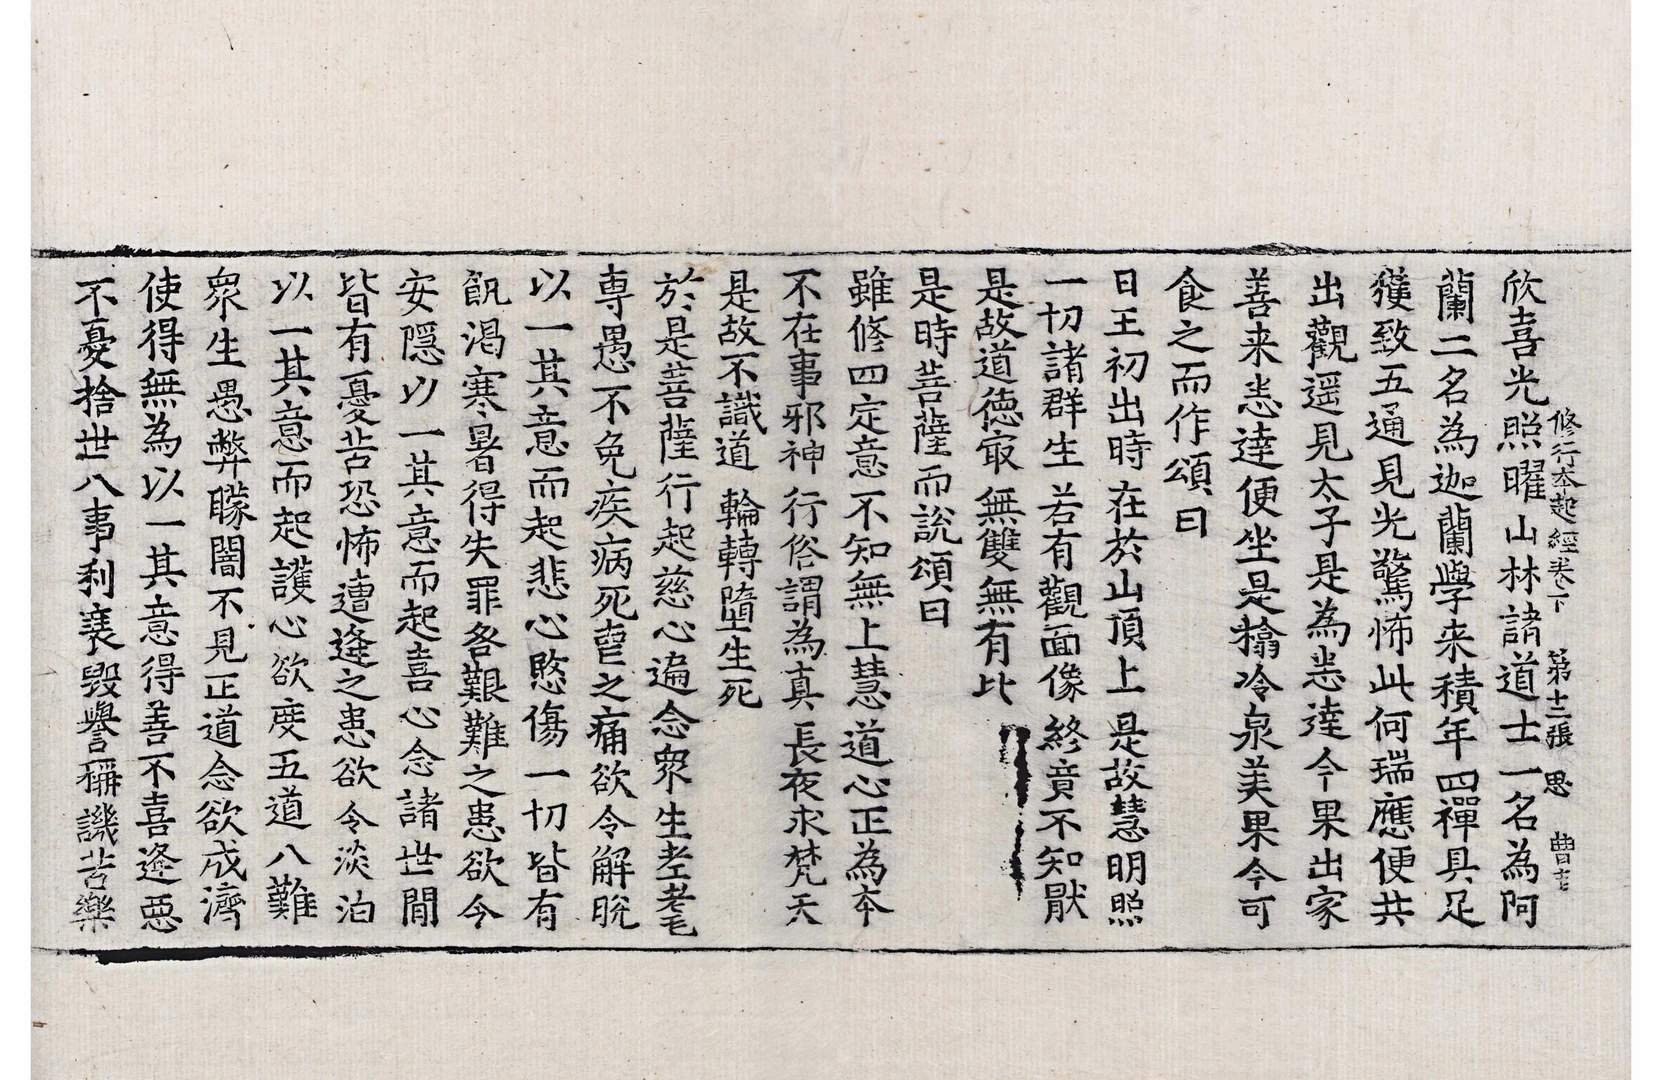 修行本起經卷下　第十二張　思　曹主
欣喜光照曜山林諸道士一名為阿
蘭二名為迦蘭學来積年四禪具足
獲致五通見光驚怖此何瑞應便共
出觀遥見太子是為悉達今果出家
善来悉達便坐是榻冷泉美果今可
食之而作頌曰
日王初出時在於山頂上　是故慧明照
一切諸群生　若有觀面像　終竟不知猒
是故道德冣　無雙無有比
是時菩薩而說頌曰
雖修四定意　不知無上慧　道心正為本
不在事邪神　行俗謂為真　長夜求梵天
是故不識道　輪轉墮生死
於是菩薩行起慈心遍念衆生老耄
專愚不免疾病死喪之痛欲令解脫
以一其意而起悲心愍傷一切皆有
飢渴寒暑得失罪咎艱難之患欲令
安隱以一其意而起喜心念諸世間
皆有憂苦恐怖遭逢之患欲令淡泊
以一其意而起護心欲度五道八難
衆生愚弊矇闇不見正道念欲成濟
使得無為以一其意得善不喜逢惡
不憂捨世八事利衰毀譽稱譏苦樂